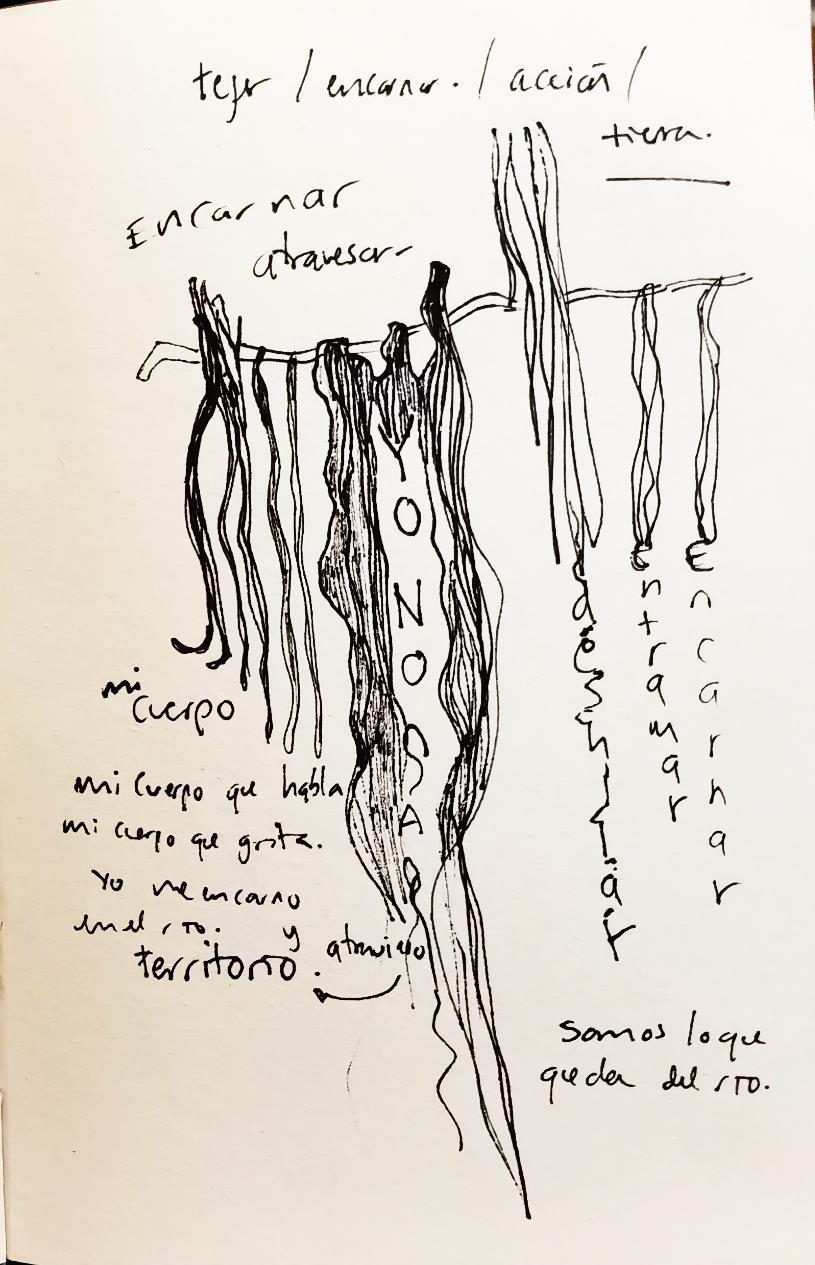 tejer / encarnar. / acción /
tierra.
Encarnar
atravesar
YO NO
deshilar
Entramar
Encarnar
mi
cuerpo
mi cuerpo que habla
mi cuerpo que grita.
Yo me encarno
en el río. y atravieso
territorio.
Somos lo que
queda del río.